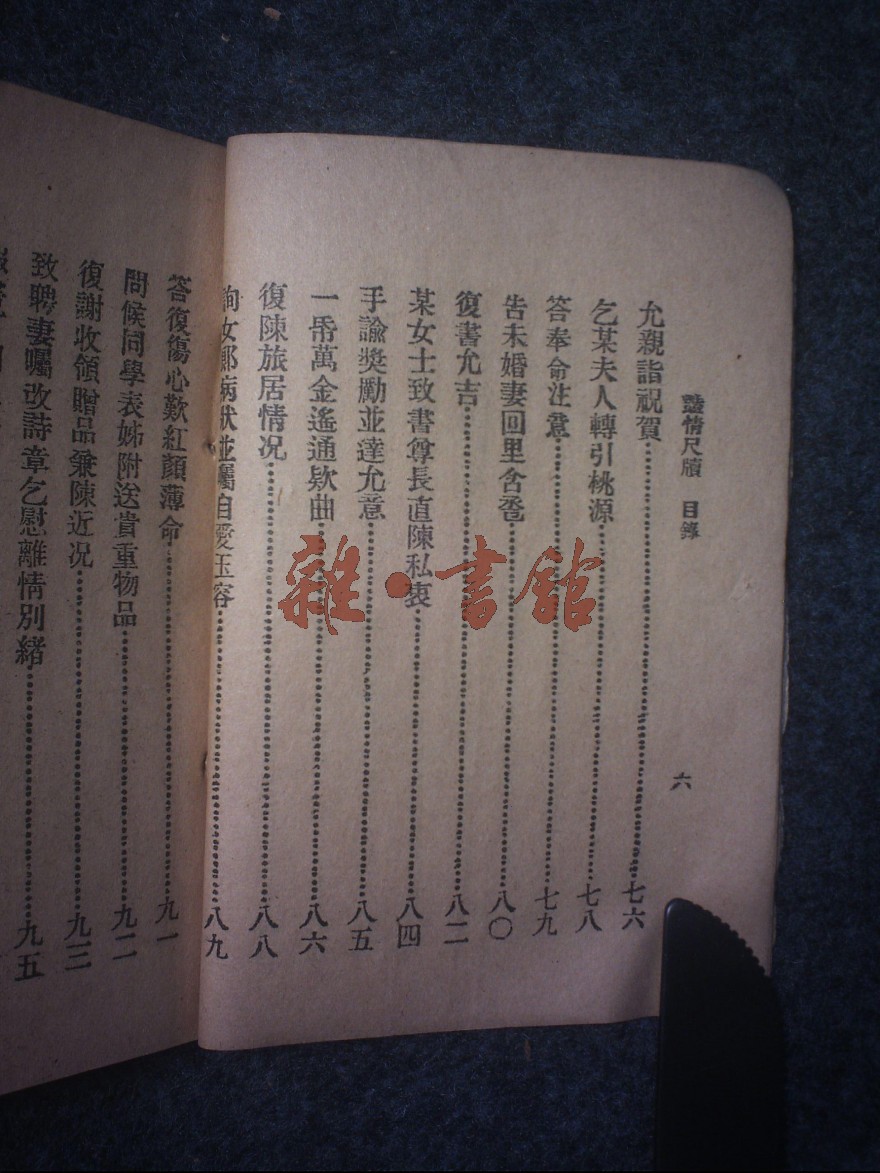 豔情尺牘 目錄 六
允親詣祝賀 七六
乞某夫人轉引桃源 七八
答奉命注意 七九
告未婚妻回里合巹 八〇
復書允吉 八二
某女士致書尊長直陳私衷 八四
手諭獎勵並達允意 八五
一帋萬金遙通欵曲 八六
復陳旅居情况 八八
詢女郞病狀並囑自愛玉容 八九
答復傷心歎紅顏薄命 九一
問候同學表姊附送貴重物品 九二
復謝收領贈品兼陳近况 九三
致聘妻囑改詩章乞慰離情別緒 九五
雜·書館